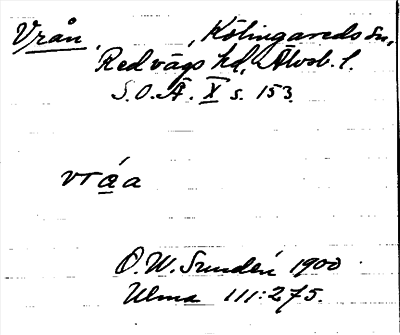 Vrån, , Kölingareds sn,
Redvägs hd, Älvsb. l.
S.O.Ä. X s. 153.
vráa
O. W. Sundén 1900
Ulma 111:275.